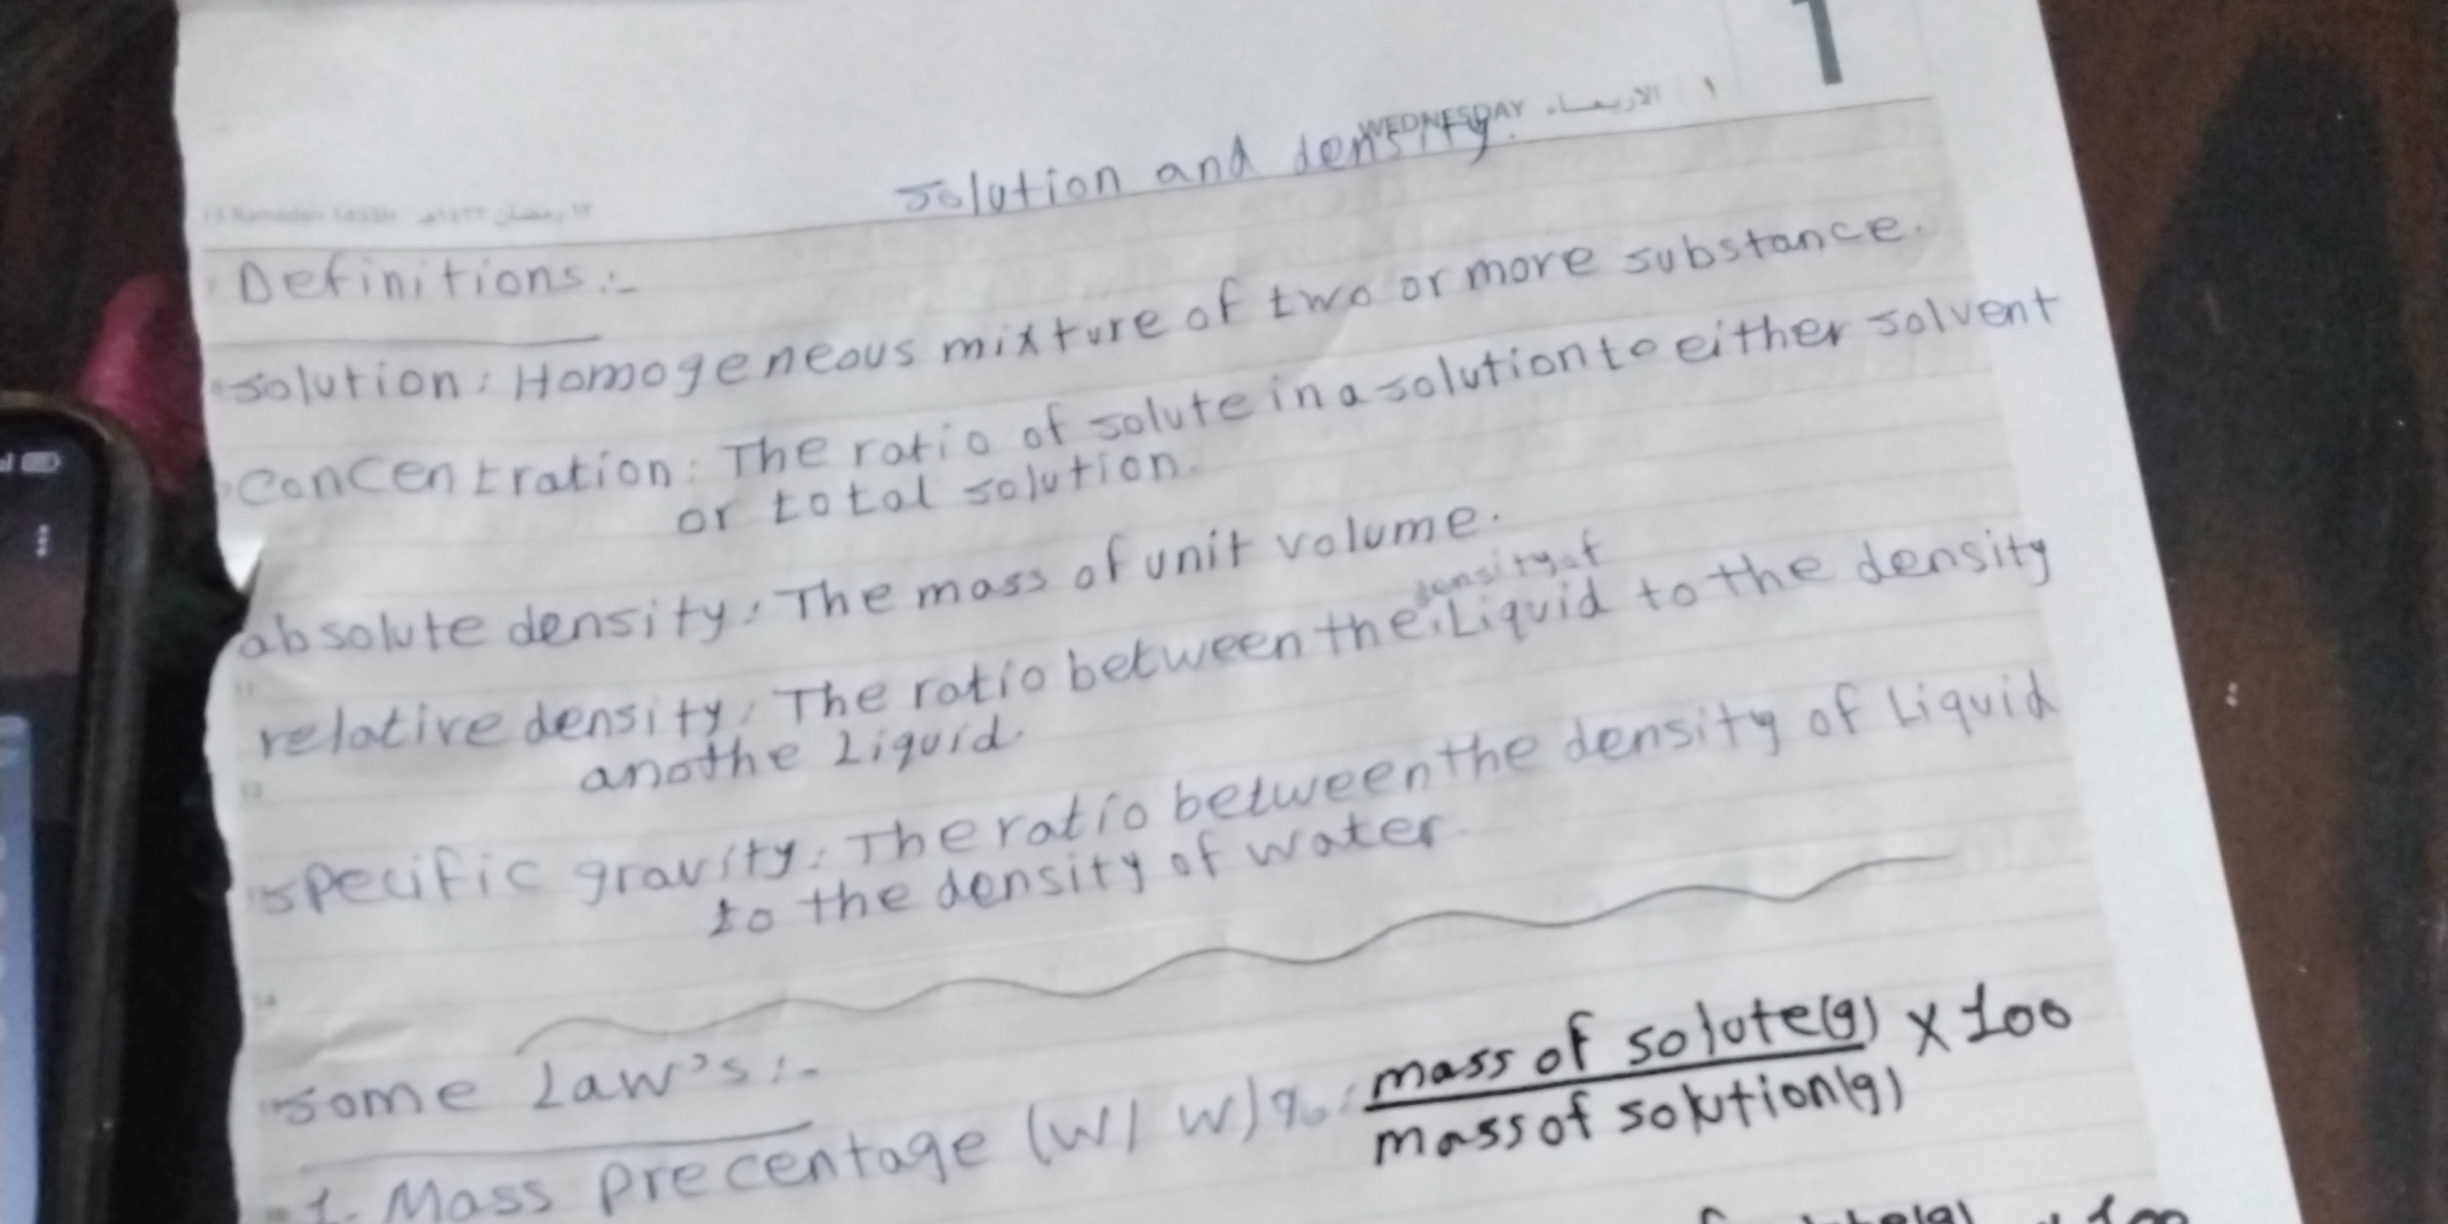 1
WEDNESDAY الاربعاء ١
solution and density.
13 Ramadan 1433H ١٣ رمضان ١٤٣٣هـ
Definitions:-
solution: Homogeneous mixture of two or more substance.
concentration: The ratio of solute in a solution to either solvent
or total solution.
absolute density: The mass of unit volume.
density of
relative density: The ratio between the Liquid to the density
anothe Liquid.
11
12
specific gravity: The ratio between the density of Liquid
to the density of water
14
some Law's:-
1. Mass precentage (W/W)%: mass of solute(g) X 100
mass of solution(g)